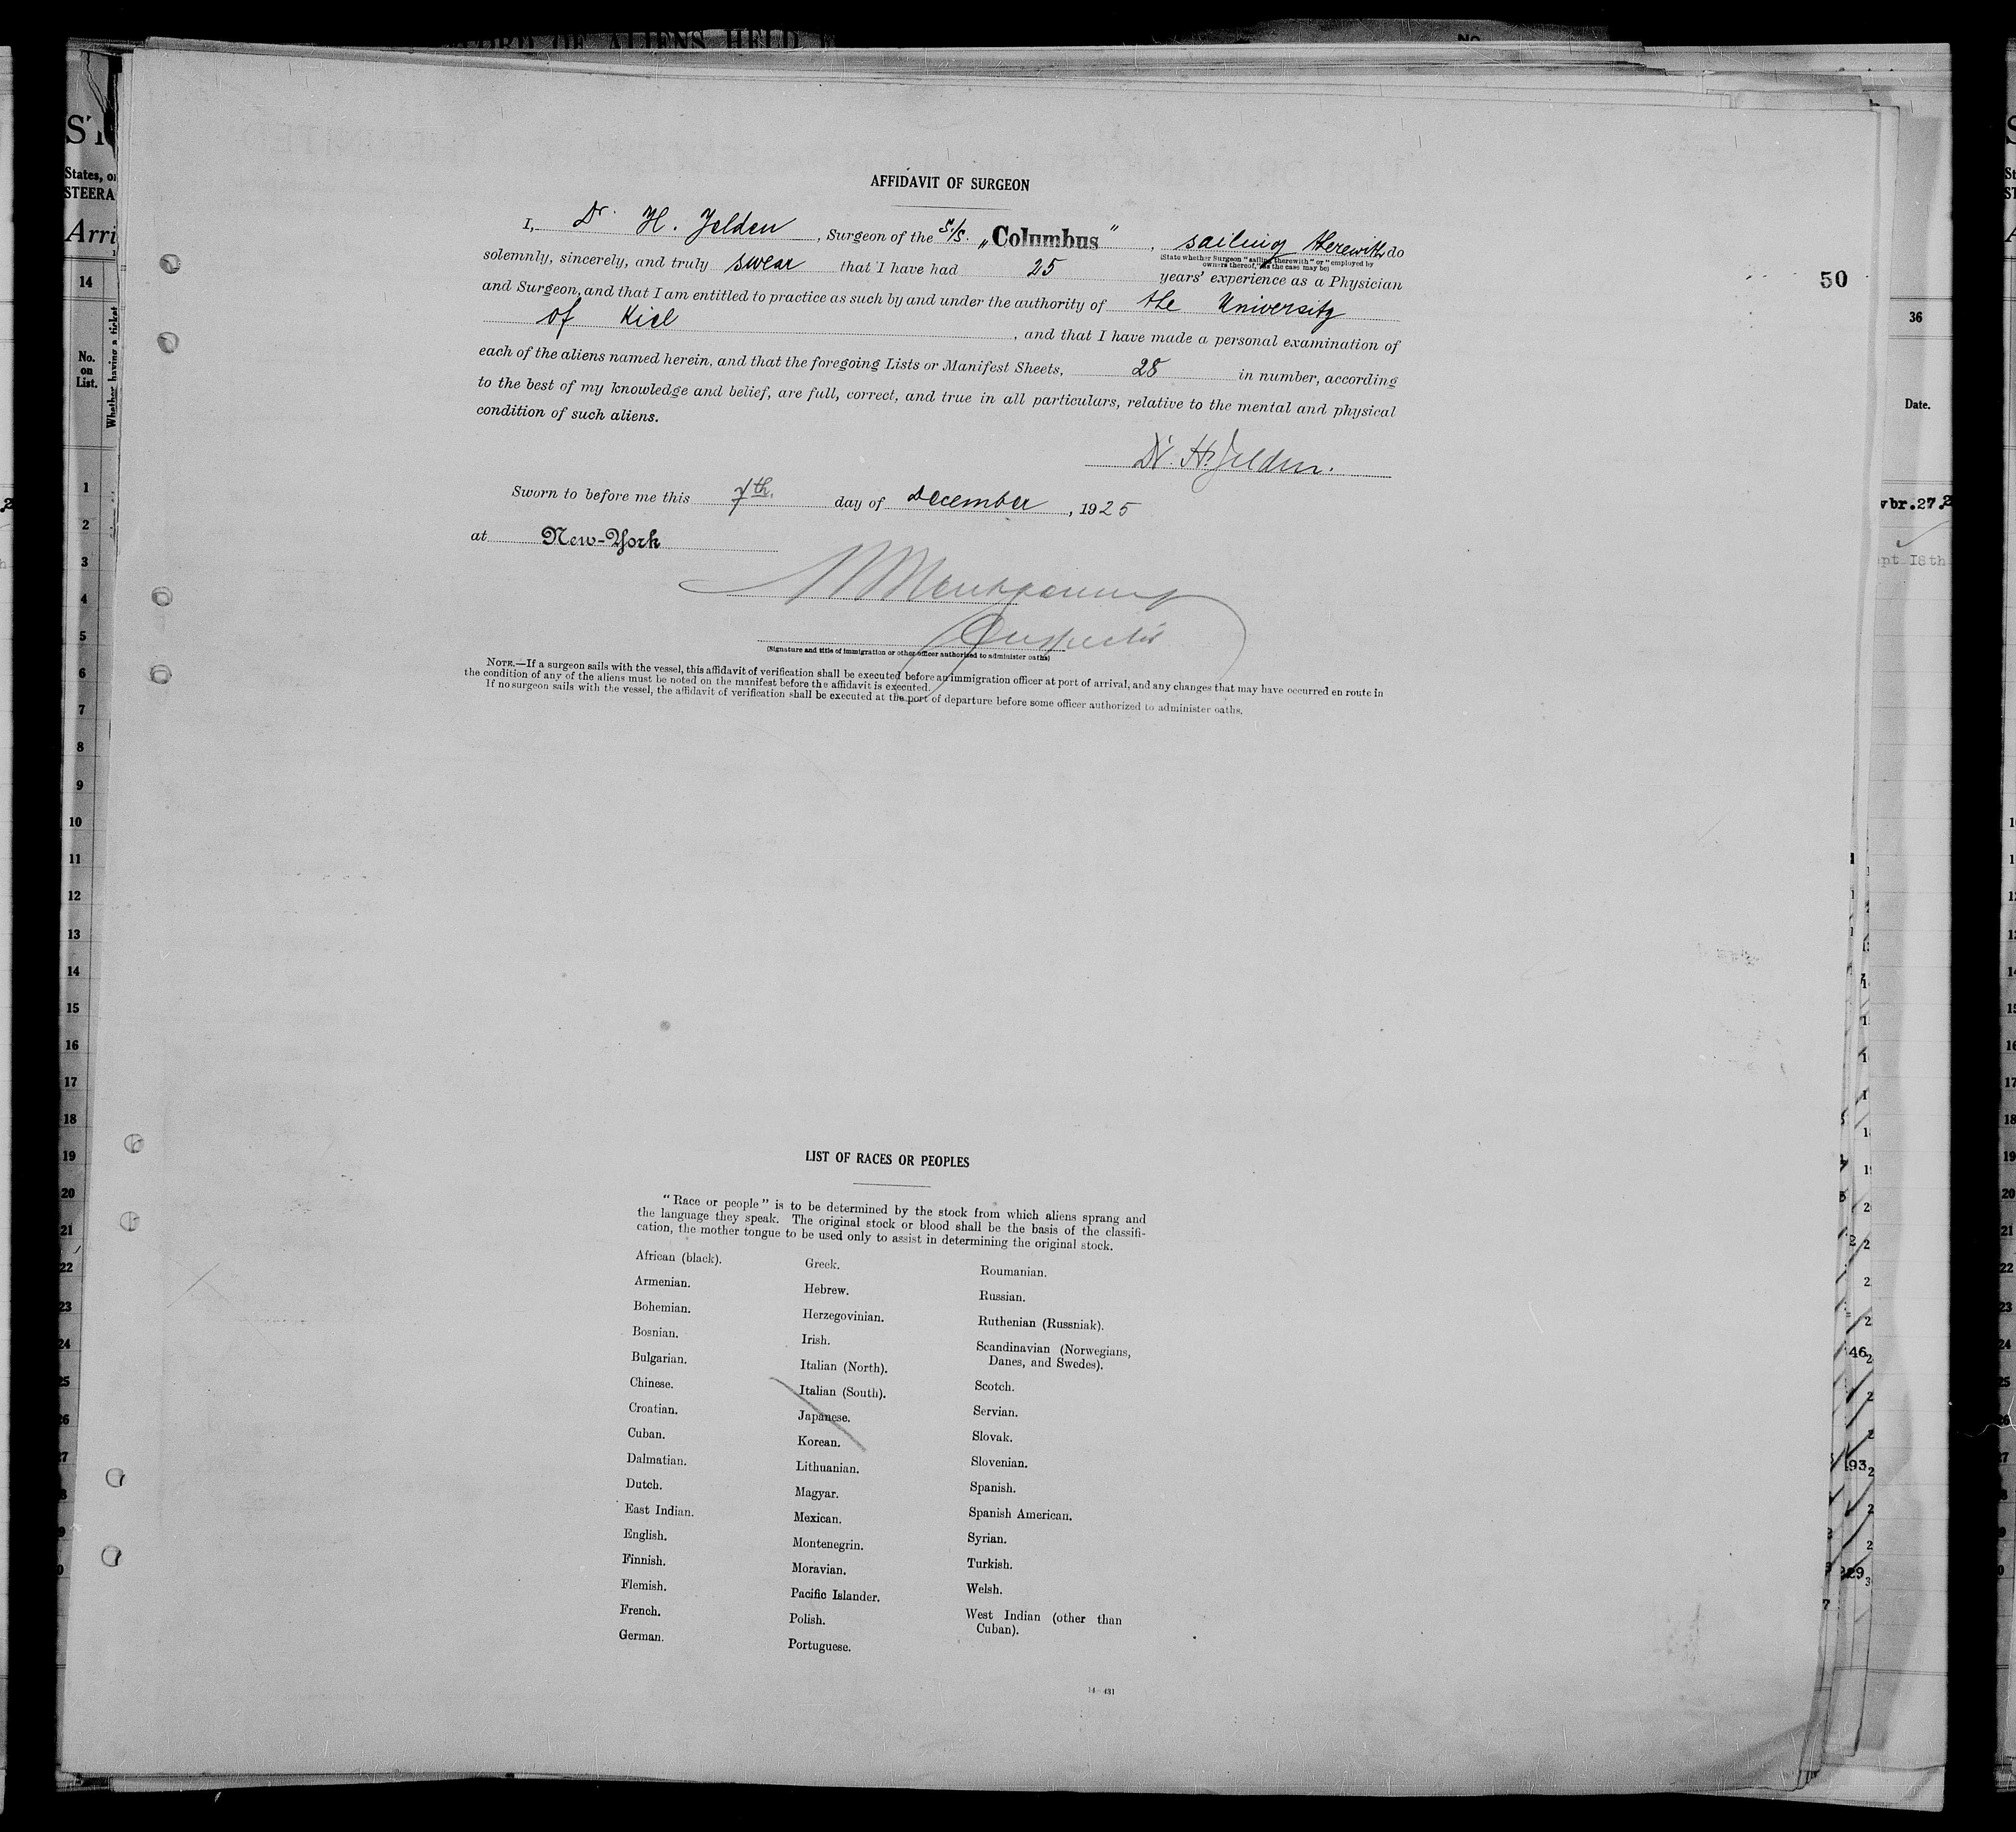 RECORD OF ALIENS HELD
No
50
AFFIDAVIT OF SURGEON
I, Dr. H. Jelden, Surgeon of the S/S. „Columbus", sailing therewith do
(State whether Surgeon "sailing therewith" or "employed by
owners thereof," as the case may be)
solemnly, sincerely, and truly swear that I have had 25 years' experience as a Physician
and Surgeon, and that I am entitled to practice as such by and under the authority of the University
of Kiel, and that I have made a personal examination of
each of the aliens named herein, and that the foregoing Lists or Manifest Sheets, 28 in number, according
to the best of my knowledge and belief, are full, correct, and true in all particulars, relative to the mental and physical
condition of such aliens.
Dr. H. Jelden.
Sworn to before me this 7th. day of December, 1925
at New-York
Inspector
(Signature and title of immigration or other officer authorized to administer oaths)
NOTE.—If a surgeon sails with the vessel, this affidavit of verification shall be executed before an immigration officer at port of arrival, and any changes that may have occurred en route in
the condition of any of the aliens must be noted on the manifest before the affidavit is executed.
If no surgeon sails with the vessel, the affidavit of verification shall be executed at the port of departure before some officer authorized to administer oaths.
LIST OF RACES OR PEOPLES
"Race or people" is to be determined by the stock from which aliens sprang and
the language they speak. The original stock or blood shall be the basis of the classifi-
cation, the mother tongue to be used only to assist in determining the original stock.
African (black).
Armenian.
Bohemian.
Bosnian.
Bulgarian.
Chinese.
Croatian.
Cuban.
Dalmatian.
Dutch.
East Indian.
English.
Finnish.
Flemish.
French.
German.
Greek.
Hebrew.
Herzegovinian.
Irish.
Italian (North).
Italian (South).
Japanese.
Korean.
Lithuanian.
Magyar.
Mexican.
Montenegrin.
Moravian.
Pacific Islander.
Polish.
Portuguese.
Roumanian.
Russian.
Ruthenian (Russniak).
Scandinavian (Norwegians,
Danes, and Swedes).
Scotch.
Servian.
Slovak.
Slovenian.
Spanish.
Spanish American.
Syrian.
Turkish.
Welsh.
West Indian (other than
Cuban).
14—431
States, or
STEERA
Arri
14
No.
on
List.
Whether having a ticket
1
2
3
4
5
6
7
8
9
10
11
12
13
14
15
16
17
18
19
20
21
22
23
24
25
26
36
Date.
vbr.27.2
pt 18th